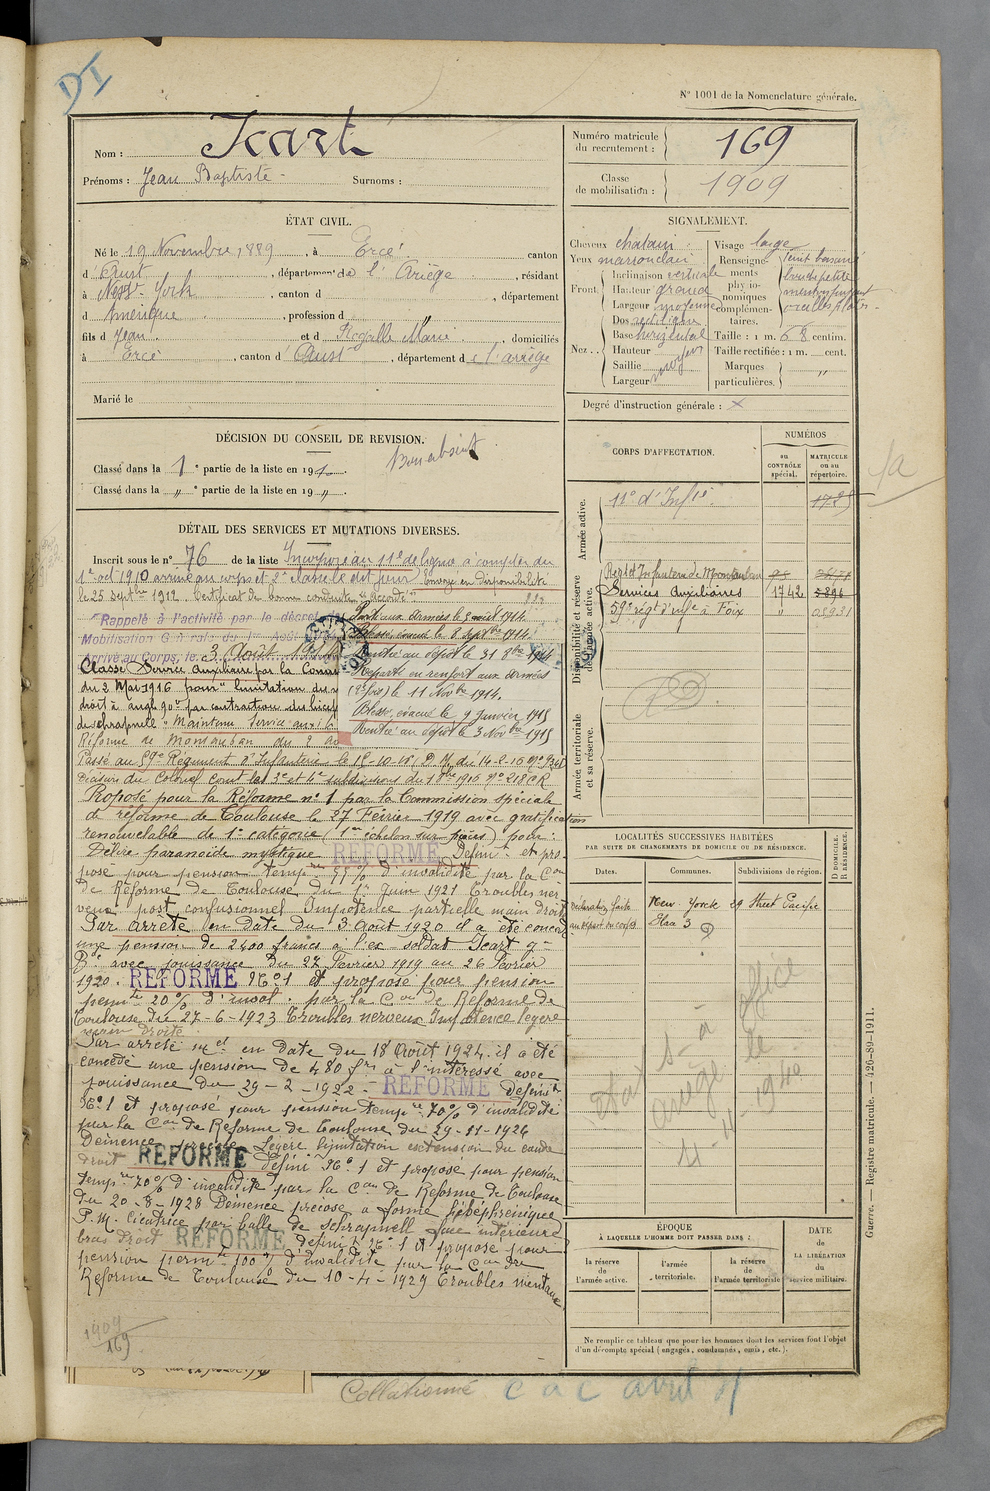 DI
N° 1001 de la Nomenclature générale.
Nom : Icart
Prénoms : Jean Baptiste - Surnoms :
Numéro matricule du recrutement : 169
Classe de mobilisation : 1909
ÉTAT CIVIL.
Né le 19 Novembre 1889, à Ercé canton
d'Oust, département de l'Ariège, résidant
à New-York, canton d , département
d Amérique, profession d "
fils d Jean et d Rogalle Marie, domiciliés
à Ercé, canton d'Oust, département de l'ariège
Marié le
SIGNALEMENT.
Cheveux chatain
Yeux marronclair
Front. Inclinaison verticale
Hauteur grande
Largeur moyenne
Nez. Dos rectiligne
Base horizontal
Hauteur
Saillie moyen
Largeur
Visage large
Renseignements physionomiques complémentaires. teint basané
bouche petite
menton fuyant
oreilles plates
Taille : 1 m. 68 centim.
Taille rectifiée : 1 m. cent.
Marques particulières. "
Degré d'instruction générale : x
DÉCISION DU CONSEIL DE REVISION.
Classé dans la 1e partie de la liste en 191 . Bon absent
Classé dans la " e partie de la liste en 19 " .
DÉTAIL DES SERVICES ET MUTATIONS DIVERSES.
Inscrit sous le n° 76 de la liste Incorporé au 11e de ligne à compter du
1er oct 1910 arrivé au corps et 2e classe le dit jour Envoyé en disponibilité
le 25 Septbre 1912. Certificat de bonne conduite "accordé"
Rappelé à l'activité par le décret
Mobilisation Générale du 1er Août 1914
Arrivé au Corps, le 3 Août 1914
Classé Service Auxiliaire par la Comm
du 2 Mai 1916 pour "limitation du
droit à angle 90° par contraction du bicep
de shrapnell" Maintenu Service auxil
Réforme de Montauban du 2
Parti aux armées le 5 août 1914.
Blessé, évacué le 8 Septbre 1914.
Rentré au dépôt le 31 8bre 1914
Reparti en renfort aux armées
le 11 Novbre 1914.
Blessé, évacué le 9 Janvier 1915
Rentré au dépôt le 3 Novbre 1915
Passé au 59e Régiment d'Infanterie le 15-10-16 (D.M. du 14-2-16 n°
Décision du Colonel comt les 2e et 4e subdivisions du 1 8bre 1916 n° 2180 R
Proposé pour la Réforme n° 1 par la Commission spéciale
de réforme de Toulouse le 27 Février 1919 avec gratification
renouvelable de 1e catégorie (1er échelon sur pièces) pour :
Délire paranoïde mystique REFORMÉ Définit et pro-
posé pour pension tempre 55% d'invalidité par la Con
de Réforme de Toulouse du 1er Juin 1921 Troubles ner
veux post confusionnel Impotence partielle main droite
Par arrêté en date du 3 août 1920 il a été concédé
une pension de 2400 francs à l'ex soldat Icart Jn
Bte avec jouissance du 27 Février 1919 au 26 Février
1920. REFORMÉ N°1 et proposé pour pension
permte 20% d'inval. par la Con de Réforme de
Toulouse du 27-6-1923 Troubles nerveux Impotence légère
main droite
Par arrêté mel en date du 18 Août 1924 il a été
concédé une pension de 480 frs à l'intéressé avec
jouissance du 29-2-1922. REFORMÉ définit
N°1 et proposé pour pension tempre 70% d'invalidité
par la Con de Réforme de Toulouse du 29-11-1926
Démence précoce Légère limitation extension du coude
droit REFORMÉ défini N°1 et proposé pour pension
tempre 70% d'invalidité par la Con de Réforme de Toulouse
du 20-8-1928 Démence précoce à forme hébéphrénique
P.M. Cicatrice par balle de schrapnell face intérieure
bras droit REFORMÉ définit N°1 et proposé pour
pension permte 100% d'invalidité par la Con de
Réforme de Toulouse du 10-4-1929 Troubles mentaux
1909
169
CORPS D'AFFECTATION.
NUMÉROS
au CONTRÔLE spécial.
MATRICULE ou au répertoire.
Armée active.
11e d'Infie
Disponibilité et réserve de l'armée active.
Regt d'Infanterie de Montauban
Services Auxiliaires 1742 5896
59e régt d'infie à Foix " 05931
Armée territoriale et sa réserve.
LOCALITÉS SUCCESSIVES HABITÉES
PAR SUITE DE CHANGEMENTS DE DOMICILE OU DE RÉSIDENCE.
Dates. Communes. Subdivisions de région. D DOMICILE. R RÉSIDENCE.
Déclaration faite New-Yorck 29 Street Pacific
au départ du corps
État S- à office
ariège le
4-11-1940
ÉPOQUE
À LAQUELLE L'HOMME DOIT PASSER DANS :
la réserve de l'armée active.
l'armée territoriale.
la réserve de l'armée territoriale
DATE DE LA LIBÉRATION du service militaire.
Ne remplir ce tableau que pour les hommes dont les services font l'objet
d'un décompte spécial (engagés, condamnés, omis, etc.).
Guerre. — Registre matricule. — 426-89-1911.
Collationné cac avril 31